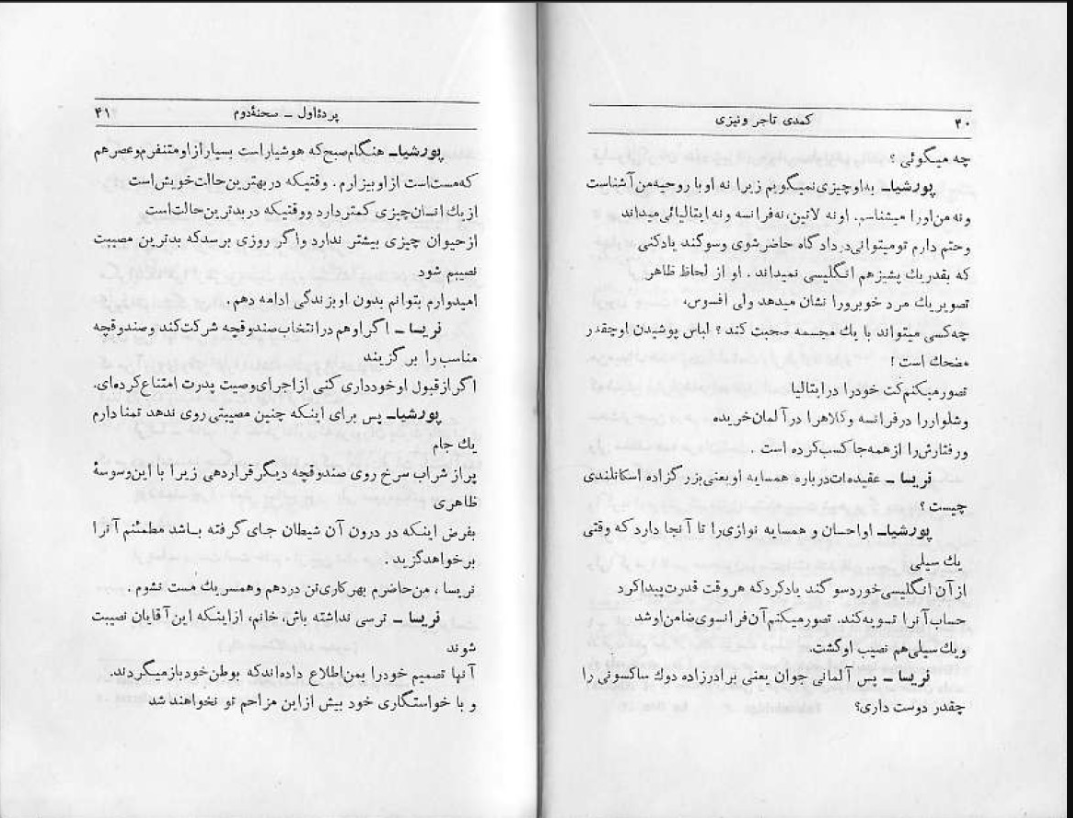 ۴۰
کمدی تاجر ونیزی
چه میگوئی ؟
پورشیاـ باوچیزی نمیگویم زیرا نه اوبا روحیه‌من آشناست
ونه من‌اورا میشناسم. اونه لاتین، نه‌فرانسه ونه ایتالیائی‌میداند
وحتم دارم تومیتوانی‌در دادگاه حاضرشوی وسوگند یادکنی
که بقدریك پشیزهم انگلیسی نمیداند . او از لحاظ ظاهر
تصویریك مرد خوبرورا نشان میدهد ولی افسوس،
چه‌کسی میتواند با یك مجسمه صحبت کند ؟ لباس پوشیدن اوچقدر
مضحك است !
تصورمیکنم‌کت خودرا درایتالیا
وشلواررا درفرانسه وکلاهرا درآلمان‌خریده
ورفتارش‌را ازهمه‌جا کسب‌کرده است .
نریسا ـ عقیده‌ات‌درباره همسایه اویعنی‌بزرگزاده اسکاتلندی
چیست ؟
پورشیاـ اواحسان و همسایه نوازی‌را تا آنجا داردکه وقتی
یك سیلی
ازآن انگلیسی‌خوردسوگند یادکردکه هروقت قدرت‌پیداکرد
حساب آنرا تسویه‌کند. تصورمیکنم‌آن‌فرانسوی‌ضامن‌اوشد
ویك سیلی‌هم نصیب اوگشت.
نریسا ـ پس آلمانی جوان یعنی برادرزاده دوك ساکسونی را
چقدر دوست داری؟
پرده‌اول ـ صحنهٔ‌دوم
۴۱
پورشیاـ هنگام‌صبح‌که هوشیاراست بسیارازاومتنفرم‌وعصرهم
که‌مست‌است ازاوبیزارم . وقتیکه دربهترین‌حالت‌خویش‌است
ازیك‌انسان‌چیزی کمتردارد ووقتیکه دربدترین‌حالت‌است
ازحیوان چیزی بیشتر ندارد واگر روزی برسدکه بدترین مصیبت
نصیبم شود
امیدوارم بتوانم بدون اوبزندگی ادامه دهم .
نریسا ـ اگراوهم‌درانتخاب‌صندوقچه شرکت‌کند وصندوقچه
مناسب‌را برگزیند
اگرازقبول اوخودداری کنی ازاجرای‌وصیت پدرت امتناع‌کرده‌ای.
پورشیاـ پس برای اینکه چنین مصیبتی‌روی ندهد تمنا دارم
یك جام
پرازشراب سرخ روی صندوقچه دیگرقراردهی زیرا با این‌وسوسهٔ
ظاهری
بفرض اینکه در درون آن شیطان جای‌گرفته باشد مطمئنم آنرا
برخواهدگزید .
نریسا ، من‌حاضرم بهرکاری‌تن دردهم وهمسریك مست نشوم .
نریسا ـ ترسی نداشته باش، خانم، ازاینکه این‌آقایان نصیبت
شوند
آنها تصمیم خودرا بمن‌اطلاع داده‌اندکه بوطن‌خودبازمیگردند.
و با خواستگاری خود بیش ازاین مزاحم تو نخواهند شد